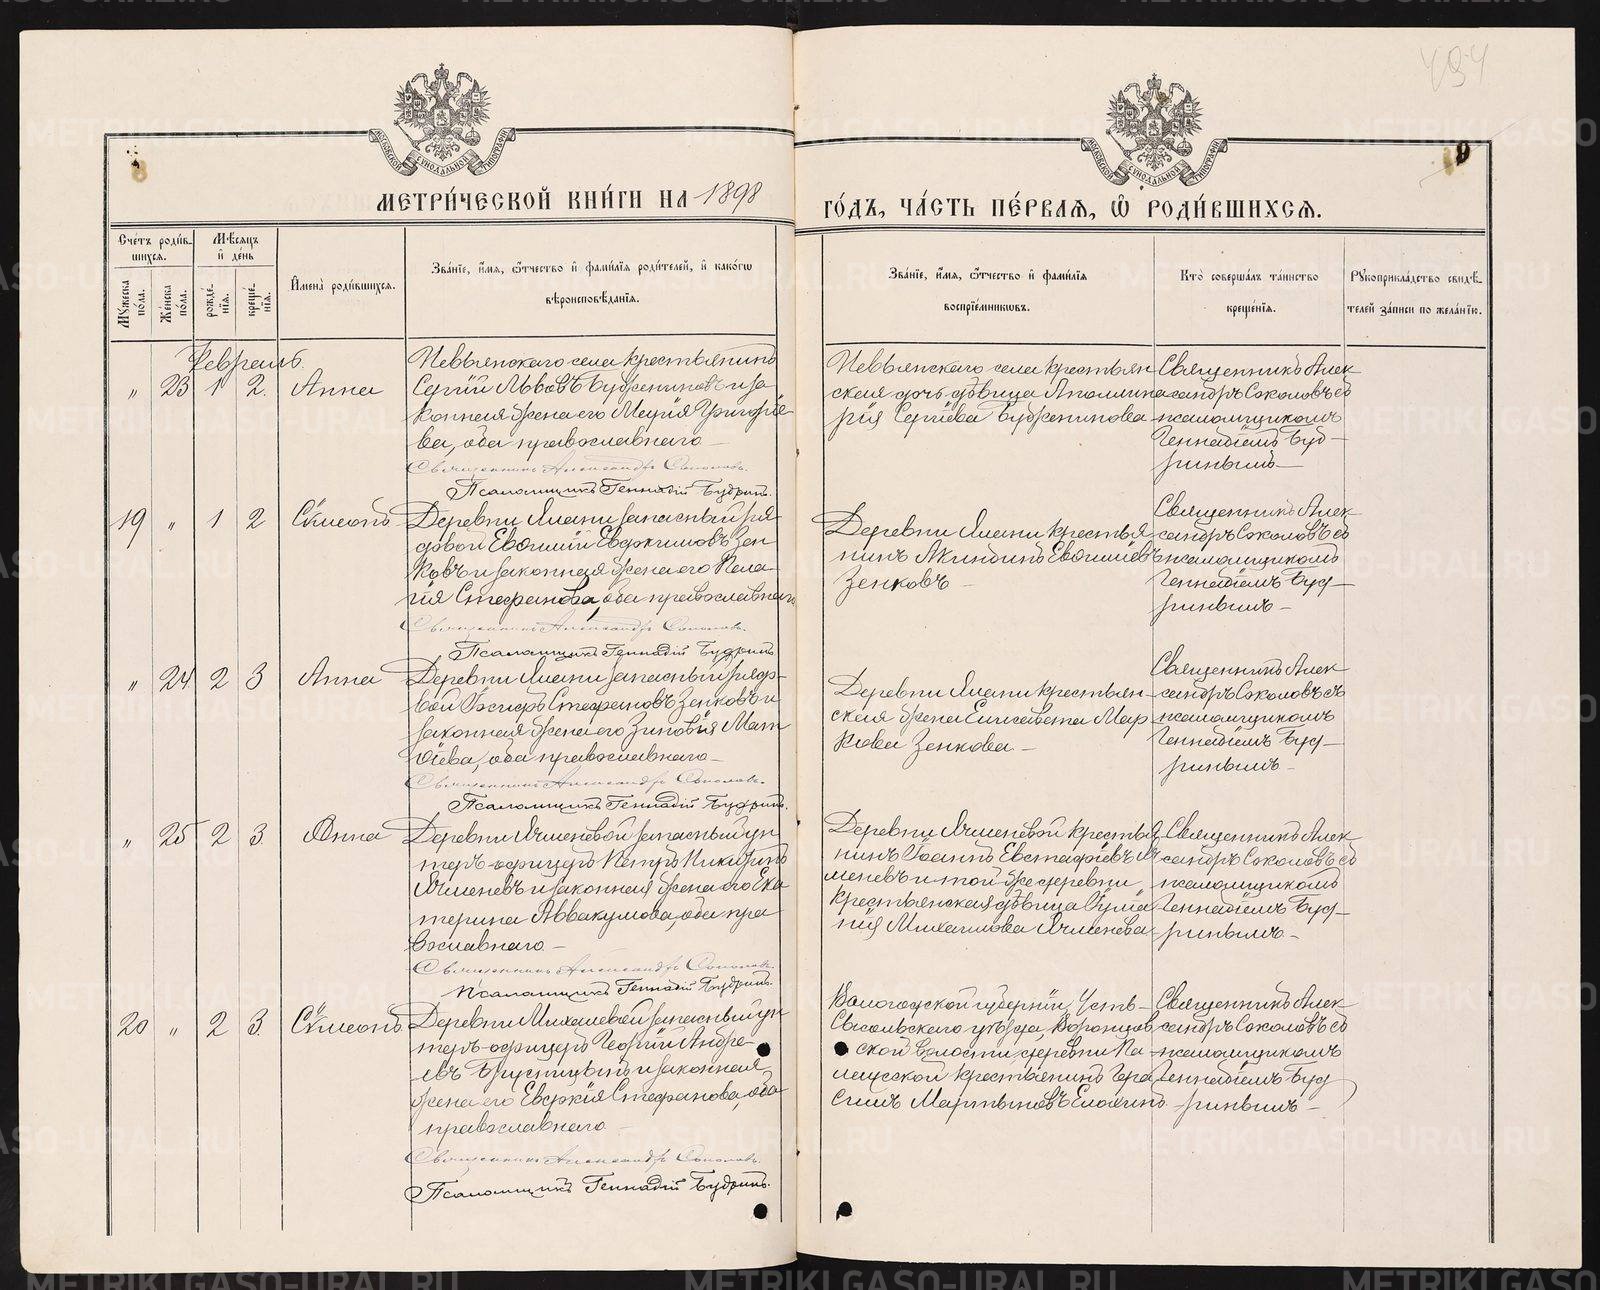 494
9
МОСКОВСКОЙ СѴНОДАЛЬНОЙ ТИПОГРАФІИ
МОСКОВСКОЙ СѴНОДАЛЬНОЙ ТИПОГРАФІИ
МЕТРИ́ЧЕСКОЙ КНИ́ГИ НА 1898
ГО́ДЪ, ЧА́СТЬ ПЕ́РВАЯ, Ѡ҆ РОДИ́ВШИХСЯ.
Сче́тъ роди́в-
шихся.
Мѣ́сяцъ
и҆ де́нь
Мꙋ́жеска по́ла.
Же́нска по́ла.
рожде́-
нїя.
креще́-
нїя.
И҆мена̀ роди́вшихся.
Зва́нїе, и҆́мя, ѻ҆́тчество и҆ фами́лїя роди́телей, и҆ како́гѡ
вѣроисповѣ́данїя.
Зва́нїе, и҆́мя, ѻ҆́тчество и҆ фами́лїя
воспрїе́мниковъ.
Кто̀ соверша́лъ та́инство
креще́нїя.
Рꙋкоприкла́дство свидѣ́-
телей за́писи по жела́нїю.
Февраль.
„ 23 1 2. Анна
Невьянскаго села крестьянинъ
Сергій Львовъ Бужениновъ и за
конная жена его Марія Григоріе
ва, оба православнаго
Священникъ Александръ Соколовъ.
Псаломщикъ Геннадій Будринъ.
Невьянскаго села крестьян
ская дочь дѣвица Аполлина
рія Сергіева Буженинова
Священникъ Алек
сандръ Соколовъ съ
псаломщикомъ
Геннадіемъ Буд-
ринымъ
19 „ 1 2 Сѵмеонъ
Деревни Ялани запасный ря
довой Евѳимій Евдокимовъ Зен
ковъ и законная жена его Пела
гія Стефанова, оба православнаго
Священникъ Александръ Соколовъ.
Псаломщикъ Геннадій Будринъ
Деревни Ялани крестья
нинъ Акиндинъ Евѳиміевъ
Зенковъ
Священникъ Алек
сандръ Соколовъ съ
псаломщикомъ
Геннадіемъ Буд-
ринымъ
„ 24 2 3 Анна
Деревни Ялани запасный рядо-
вой Стефановъ Зенковъ и
законная жена его Зиновія Мат
ѳіева, оба православнаго
Священникъ Александръ Соколовъ.
Псаломщикъ Геннадій Будринъ.
Деревни Ялани крестьян-
ская жена Елисавета Мар
кова Зенкова
Священникъ Алек
сандръ Соколовъ съ
псаломщикомъ
Геннадіемъ Буд-
ринымъ
„ 25 2 3. Анна
Деревни Ячменевой запасный ун
теръ-офицеръ Петръ Никитинъ
Ячменевъ и законная жена его Ека
терина Аввакумова, оба пра
вославнаго
Священникъ Александръ Соколовъ.
Псаломщикъ Геннадій Будринъ.
Деревни Ячменевой крестья
нинъ Іоаннъ Евстафіевъ Яч
меневъ и той же деревни
крестьянская дѣвица
Михаилова Ячменева
Священникъ Алек
сандръ Соколовъ съ
псаломщикомъ
Геннадіемъ Буд-
ринымъ
20 „ 2 3. Сѵмеонъ
Деревни Михалевой запасный ун
теръ-офицеръ Георгій Андре-
евъ Брусницынъ и законная
жена его Евдокія Стефанова, оба
православнаго
Священникъ Александръ Соколовъ.
Псаломщикъ Геннадій Будринъ.
Вологодской губерніи, Усть-
Сысольскаго уѣзда, Воронцов
ской волости, деревни Па
крестьянинъ Гера
симъ Мартыновъ
Священникъ Алек
сандръ Соколовъ съ
псаломщикомъ
Геннадіемъ Буд
ринымъ
METRIKI.GASO-URAL.RU